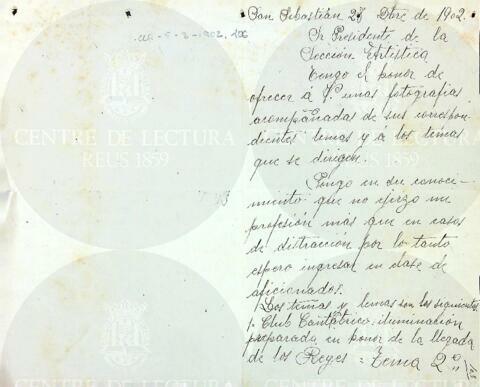 San Sebastián 27 Dbre de 1902.
Sr Presidente de la
Sección Artística
Tengo el honor de
ofrecer á V. unas fotografias
acompañadas de sus correspon-
dientes lemas y á los temas
que se dirigen.
Pongo en su conoci-
miento que no ejerzo mi
profesión más que en casos
de distracción por lo tanto
espero ingresar en clase de
aficionados.
Los temas y lemas son los siguientes
1. Club Cantábrico, iluminación
preparada en honor de la llegada
de los Reyes = Tema 2º
CENTRE DE LECTURA
REUS 1859